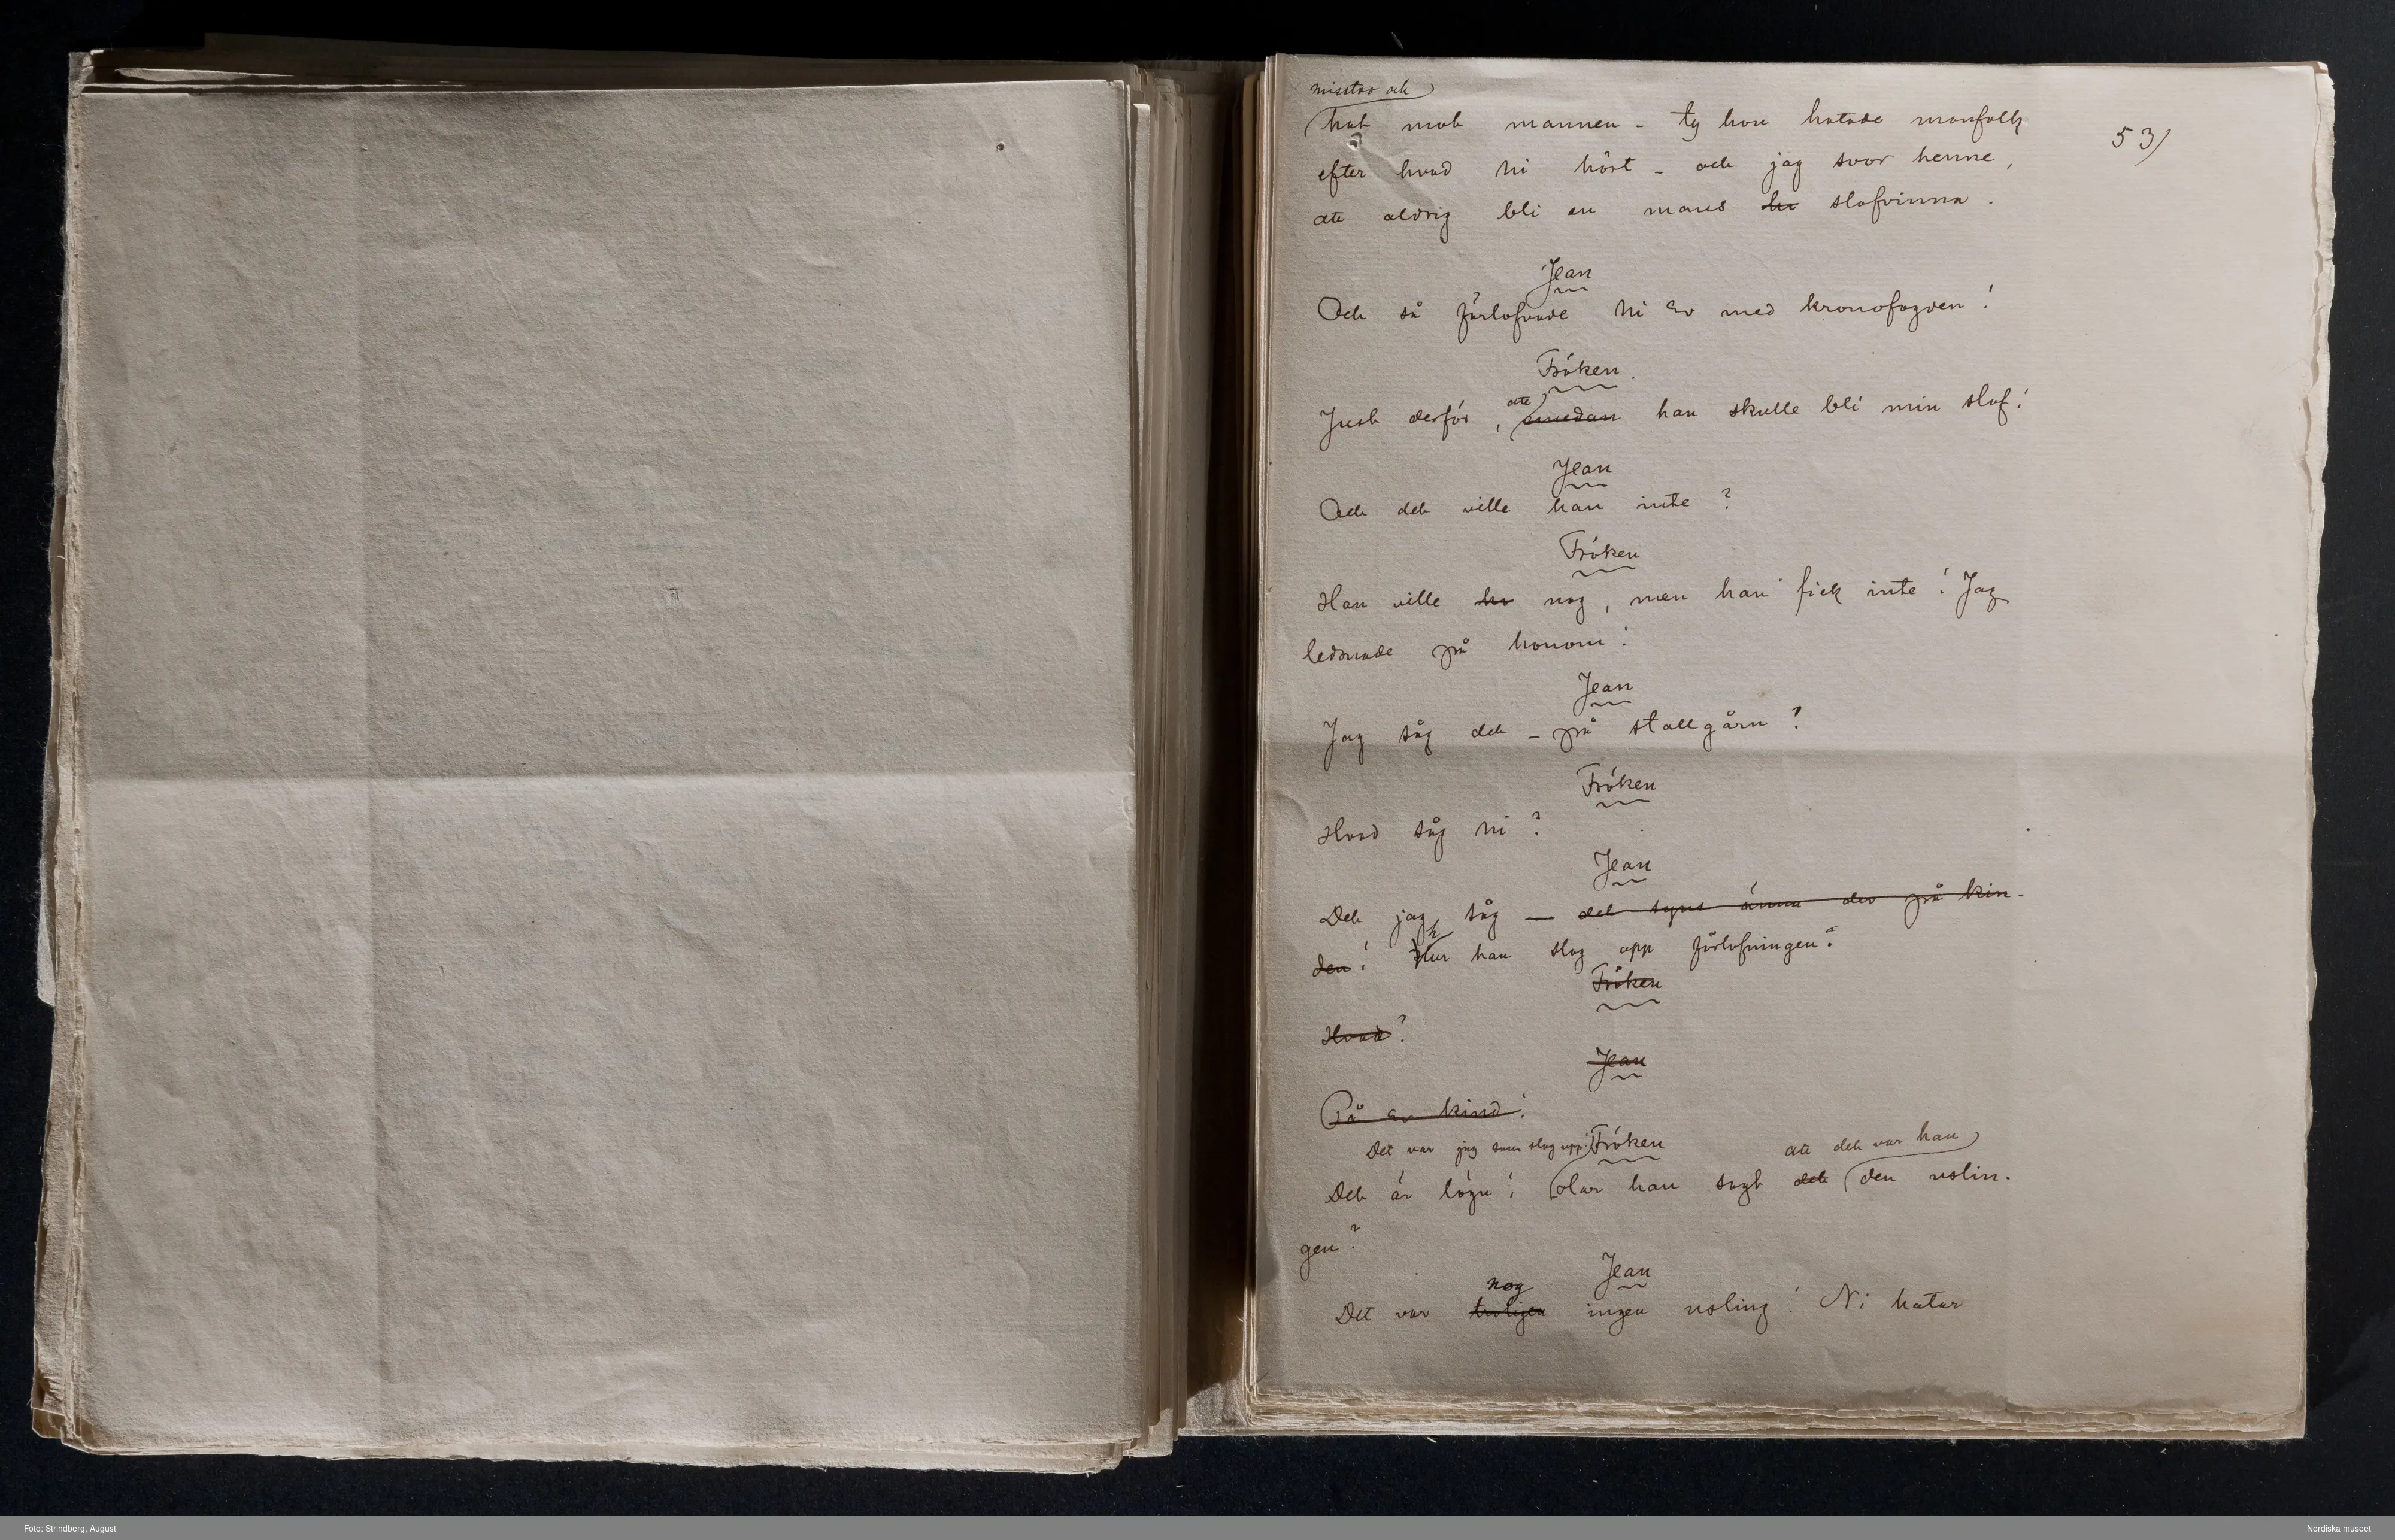 misstro och
hat mot mannen – ty hon hatade manfolk
53)
efter hvad ni hört – och jag svor henne,
att aldrig bli en mans slafvinna.
Jean
Och så förlofvade ni er med kronofogden!
Fröken.
att
Just derför, emedan han skulle bli min slaf!
Jean
Och det ville han inte?
Fröken
Han ville nog, men han fick inte! Jag
ledsnade på honom!
Jean
Jag såg det – på stallgårn?
Fröken
Hvad såg ni?
Jean
Det jag såg — det syns ännu der på kin-
h
den! Hur han slog opp förlofningen?
Fröken
Hvad?
Jean
På er kind!
Det var jag som slog upp! Fröken att det var han
Det är lögn! Har han sagt det den uslin-
gen?
Jean
nog
Det var troligen ingen usling! Ni hatar
Foto: Strindberg, August
Nordiska museet